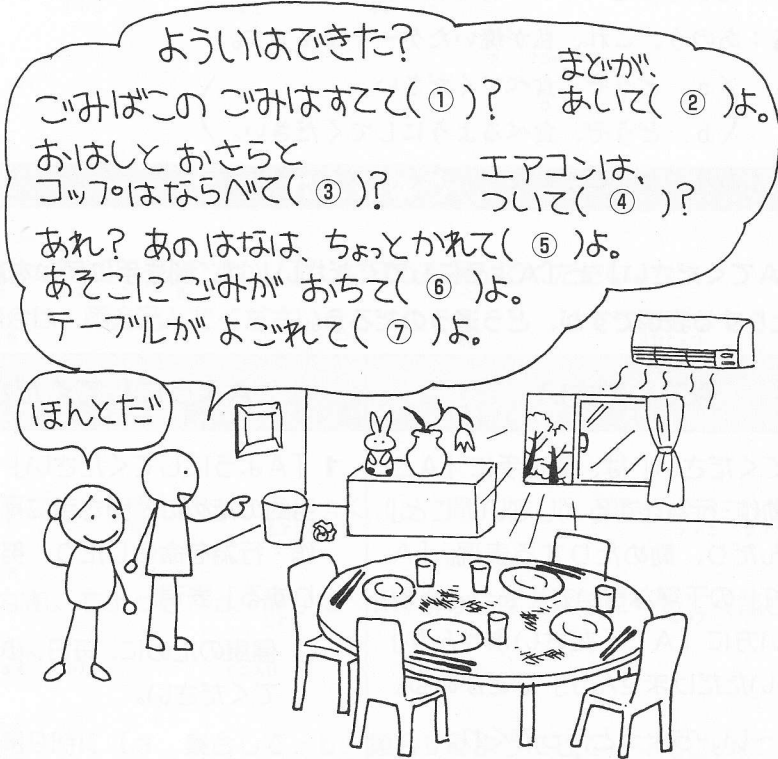 ようい​はできた?
ごみばこの ごみはすてて( ① )?
まどが、
あいて( ② )よ。
おはしと おさらと
コップはならべて( ③ )?
エアコンは、
ついて( ④ )?
あれ? あのはなは、ちょっとかれて( ⑤ )よ。
あそこに ごみが おちて( ⑥ )よ。
テーブルが よごれて( ⑦ )よ。
ほんとだ